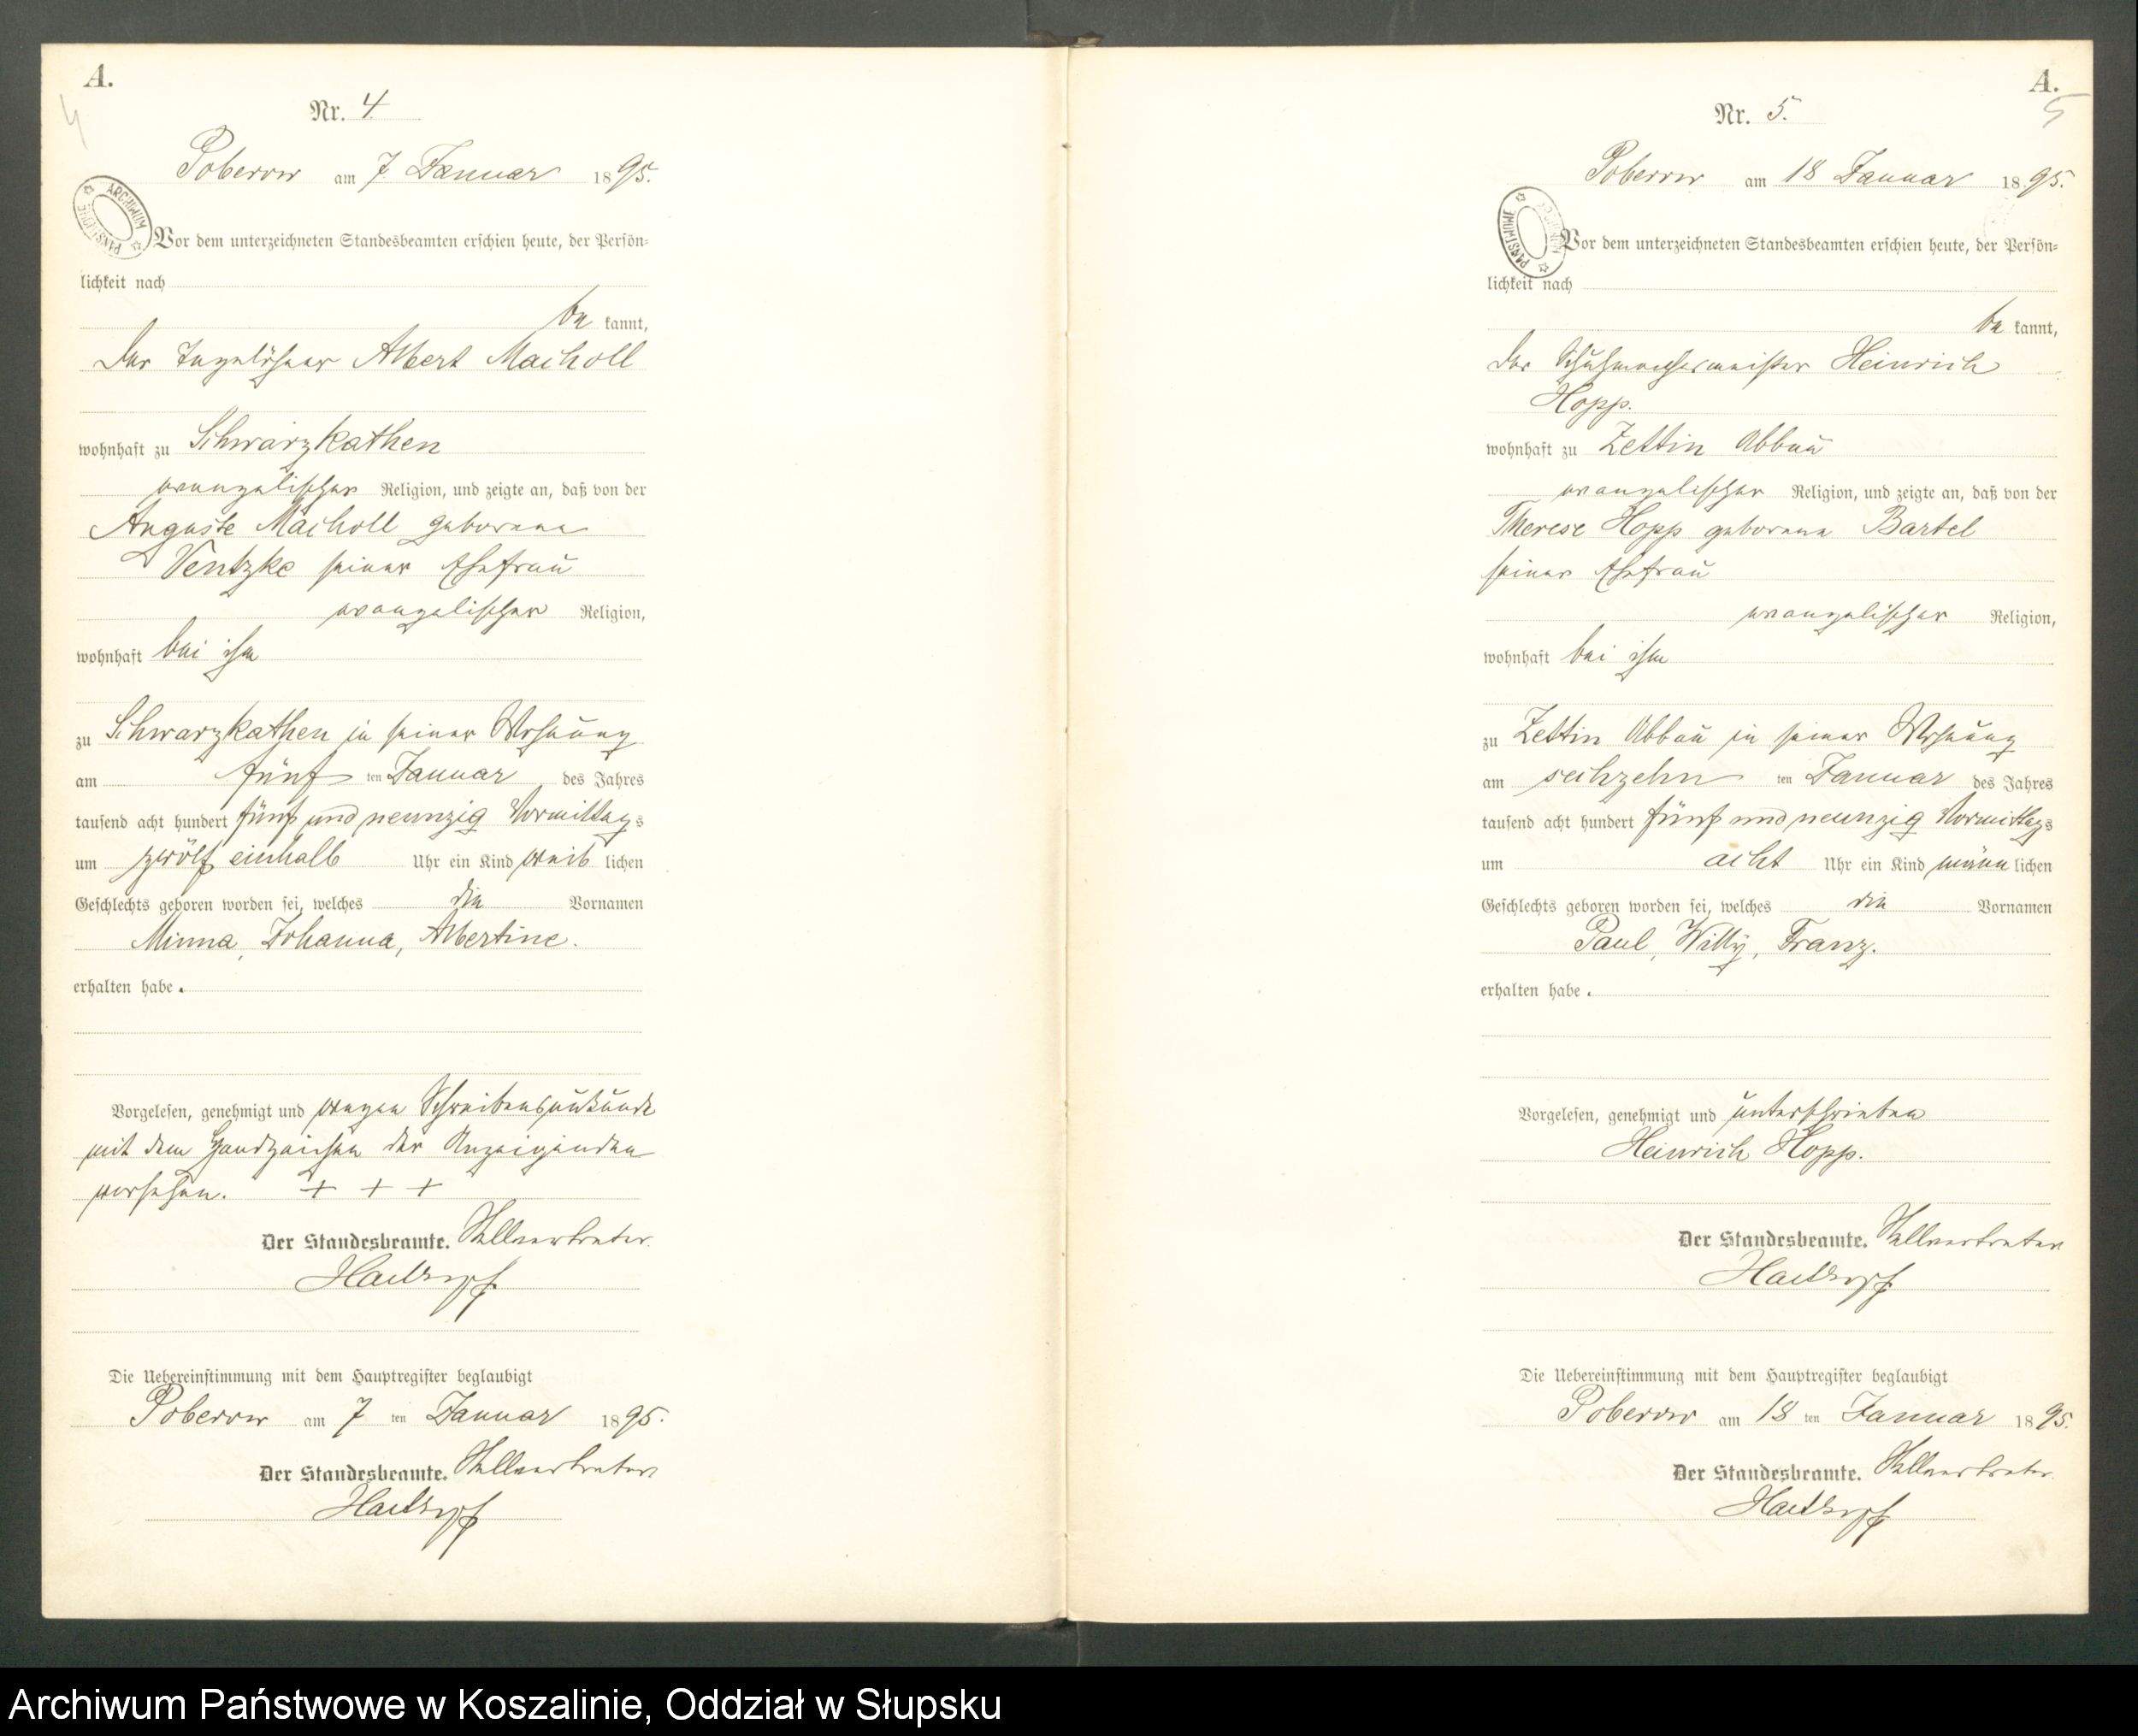 A.
4
Nr. 4
Poberow am 7 Januar 1895.
ARCHIWUM PAŃSTWOWE
Vor dem unterzeichneten Standesbeamten erschien heute, der Persön-
lichkeit nach
be kannt,
Der Tagelöhner Albert Macholl
wohnhaft zu Schwarzkathen
evangelischer Religion, und zeigte an, daß von der
Auguste Macholl geborene
Ventzke seiner Ehefrau
evangelischer Religion,
wohnhaft bei ihm
zu Schwarzkathen in seiner Wohnung
am fünf ten Januar des Jahres
tausend acht hundert fünf und neunzig Vormittags
um zwölf einhalb Uhr ein Kind weib lichen
Geschlechts geboren worden sei, welches die Vornamen
Minna, Johanna, Albertine.
erhalten habe.
Vorgelesen, genehmigt und wegen Schreibensunkunde
mit dem Handzeichen des Anzeigenden
versehen. + + +
Der Standesbeamte. Stellvertreter.
Hackkopf
Die Uebereinstimmung mit dem Hauptregister beglaubigt
Poberow am 7 ten Januar 1895.
Der Standesbeamte. Stellvertreter
A.
5
Nr. 5.
Poberow am 18 Januar 1895.
ARCHIWUM PAŃSTWOWE
Vor dem unterzeichneten Standesbeamten erschien heute, der Persön-
lichkeit nach
be kannt,
der Schuhmachermeister Heinrich
Hopp.
wohnhaft zu Zettin Abbau
evangelischer Religion, und zeigte an, daß von der
Therese Hopp geborene Bartel
seiner Ehefrau
evangelischer Religion,
wohnhaft bei ihm
zu Zettin Abbau in seiner Wohnung
am sechzehn ten Januar des Jahres
tausend acht hundert fünf und neunzig Vormittags
um acht Uhr ein Kind männ lichen
Geschlechts geboren worden sei, welches die Vornamen
Paul, Willy, Franz.
erhalten habe.
Vorgelesen, genehmigt und unterschrieben
Heinrich Hopp.
Der Standesbeamte. Stellvertreter
Die Uebereinstimmung mit dem Hauptregister beglaubigt
Poberow am 18 ten Januar 1895.
Der Standesbeamte. Stellvertreter.
Archiwum Państwowe w Koszalinie, Oddział w Słupsku